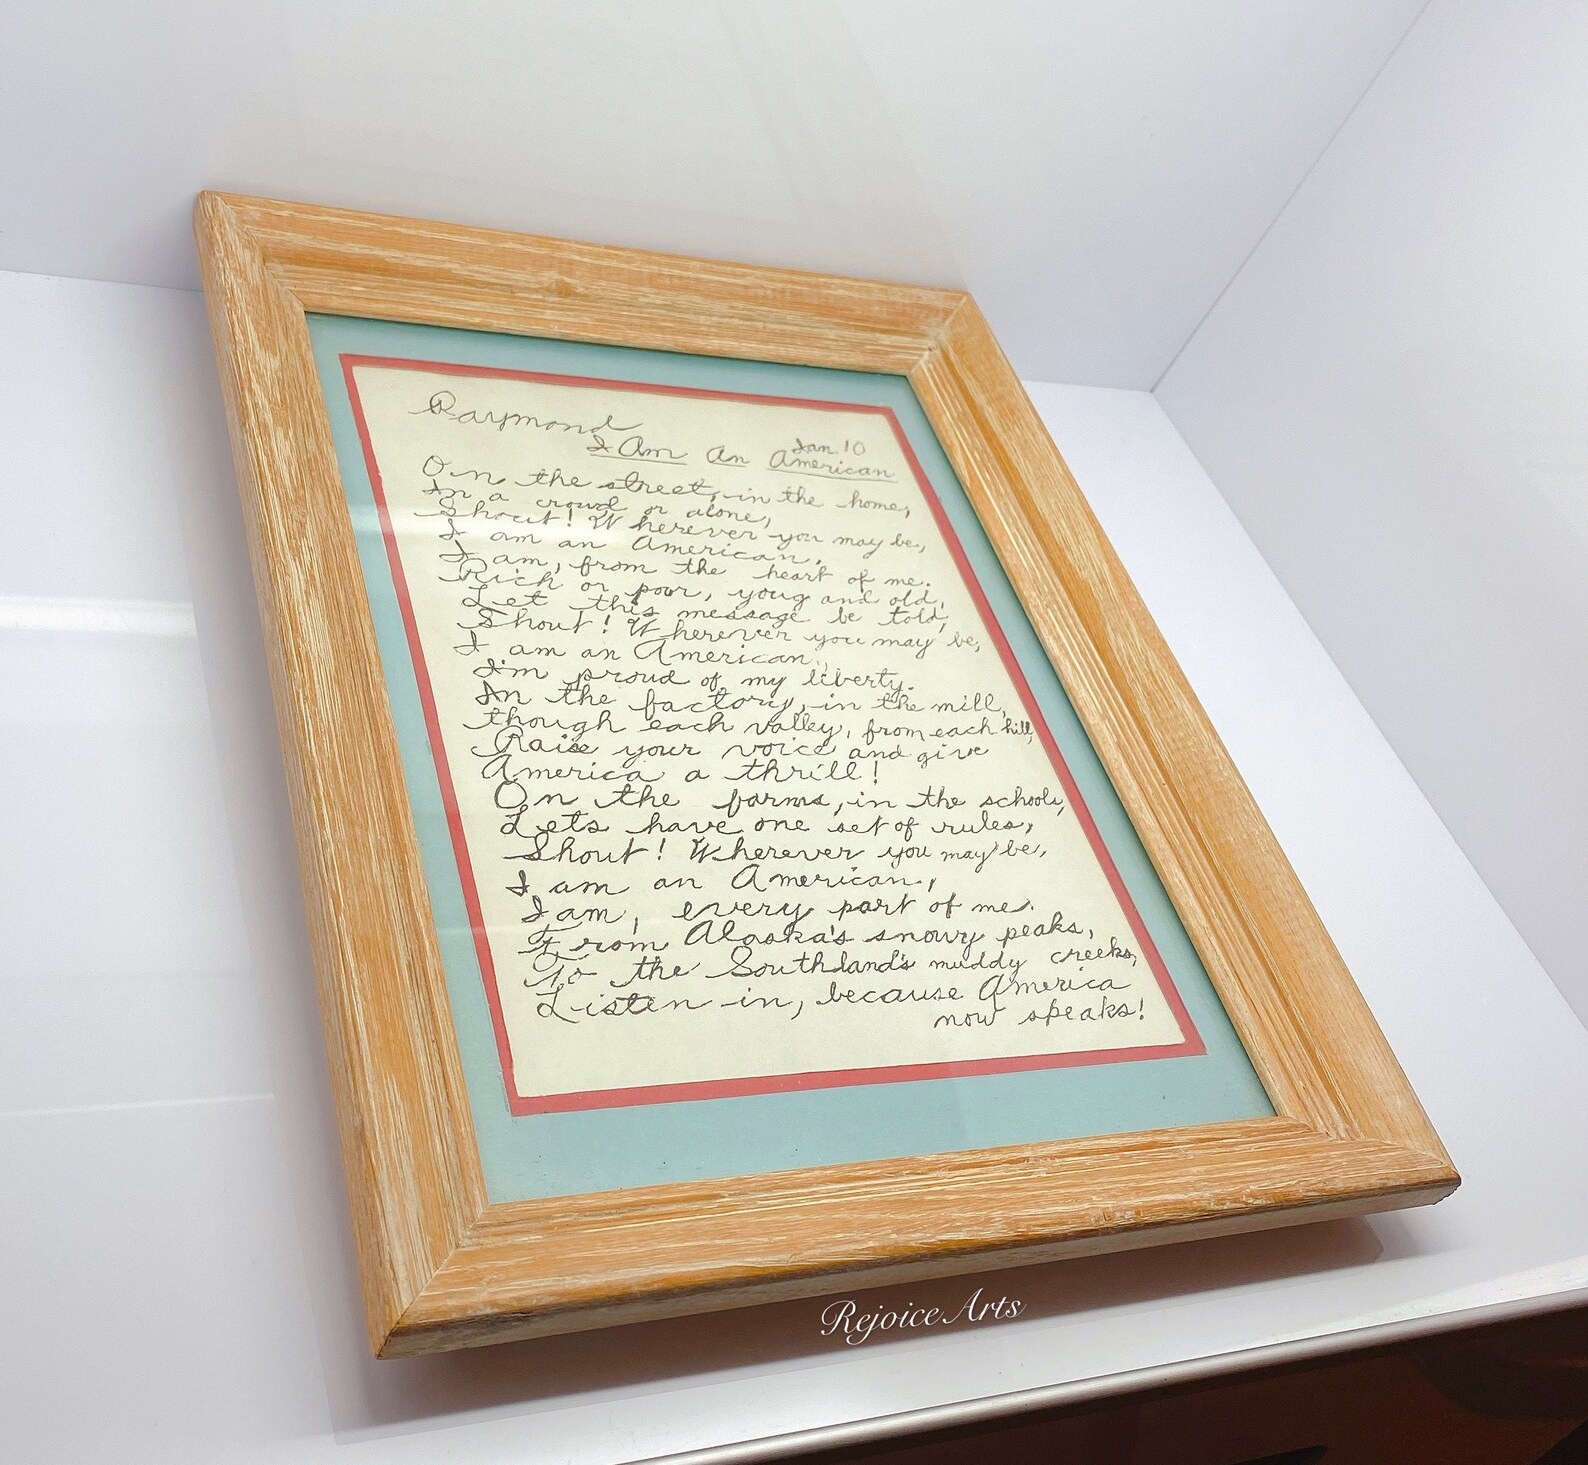 Raymond
Jan. 10
I Am An American
On the street, in the home,
In a crowd or alone,
Shout! Wherever you may be,
I am an American,
I am, from the heart of me.
Rich or poor, youg and old,
Let this message be told,
Shout! Wherever you may be,
I am an American,
I'm proud of my liberty.
In the factory, in the mill,
though each valley, from each hill,
Raise your voice and give
America a thrill!
On the farms, in the schools,
Lets have one set of rules,
Shout! Wherever you may be,
I am an American,
I am, every part of me.
From Alaska's snowy peaks,
To the Southland's muddy creeks,
Listen in, because America
now speaks!
Rejoice Arts